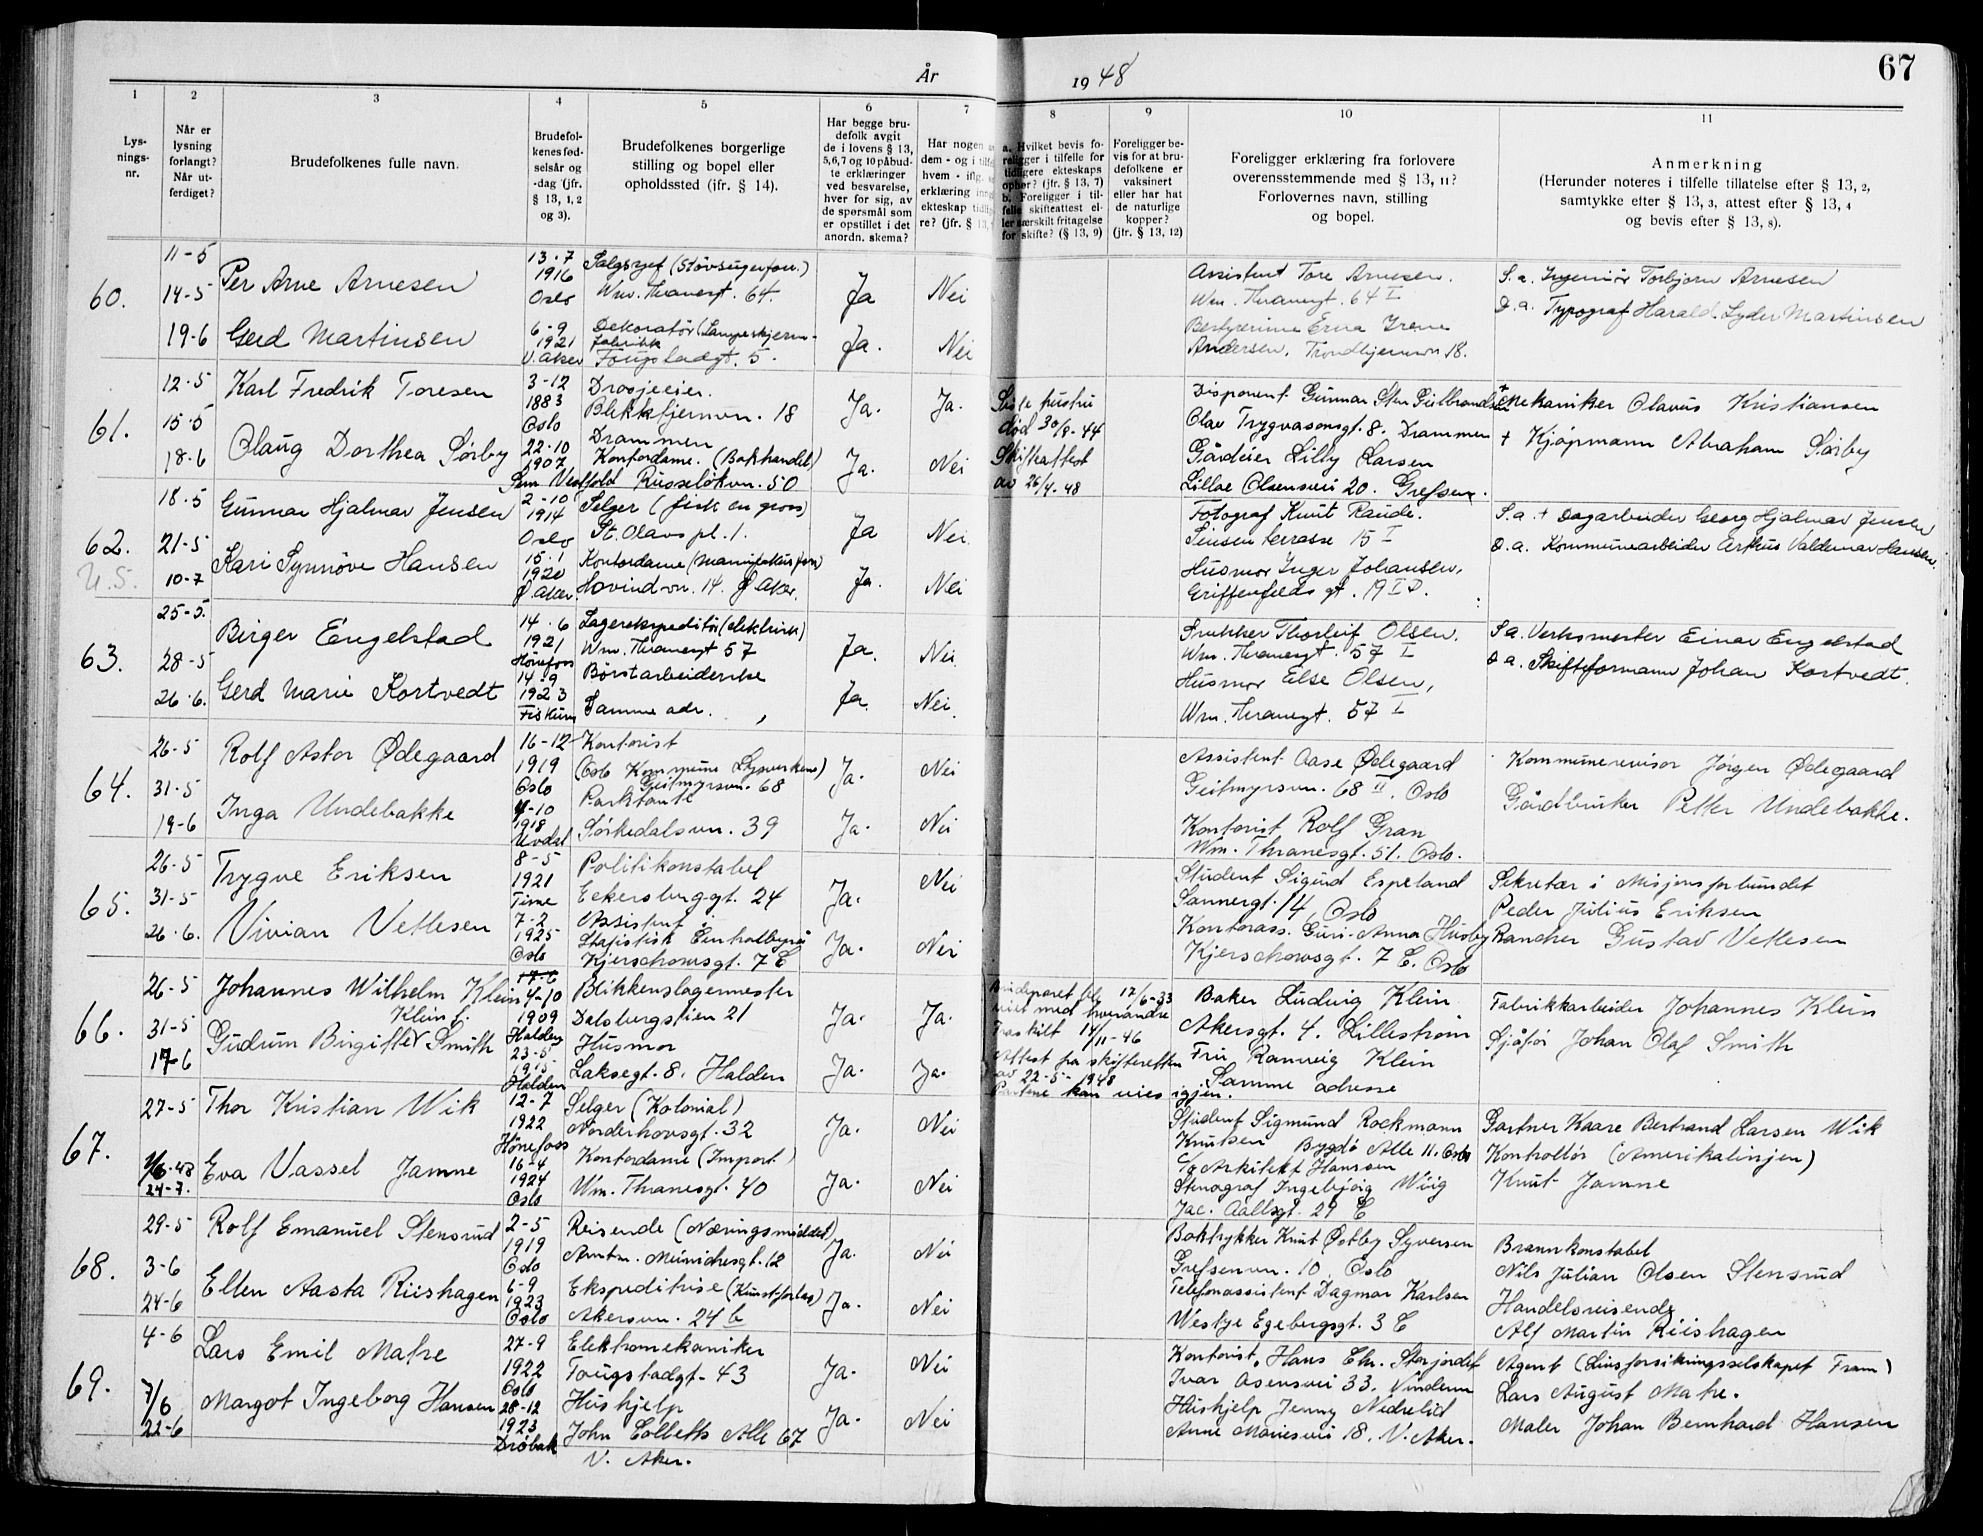 År 1948
67
1 2 3 4 5 6 7 8 9 10 11
Lys-
nings-
nr.
Når er
lysning
forlangt?
Når ut-
ferdiget?
Brudefolkenes fulle navn.
Brudefol-
kenes fød-
selsår og
-dag (jfr.
§ 13, 1, 2
og 3).
Brudefolkenes borgerlige
stilling og bopel eller
opholdssted (jfr. § 14).
Har begge bru-
defolk avgit
de i lovens § 13,
5,6,7 og 10 påbud-
te erklæringer
ved besvarelse,
hver for sig, av
de spørsmål som
er opstillet i det
anordn. skema?
Har nogen
dem - og i
hvem - iflg.
erklæring
ekteskap
re? (jfr.
a. Hvilket bevis fo-
religger i tilfelle for
tidligere ekteskaps
ophør? (jfr. § 13, 7)
b. Foreligger i til-
felle skifteattest el-
ler særskilt fritagelse
for skifte? (§ 13, 9)
Foreligger be-
vis for at bru-
defolkene er
vaksinert
eller har hat
de naturlige
kopper?
(jfr. § 13, 12)
Foreligger erklæring fra forlovere
overensstemmende med § 13, 11?
Forlovernes navn, stilling
og bopel.
Anmerkning
(Herunder noteres i tilfelle tillatelse efter § 13, 2,
samtykke efter § 13, 3, attest efter § 13, 4
og bevis efter § 13, 8).
60.
11-5
14-5
19-6
Per Arne Arnesen
Gerd Martinsen
13.7
1916
Oslo
6-9
1921
V. Aker
Salgssjef (Støvsugerforr.)
Wm. Thranesgt. 64.
Dekoratør (Lampeskjerm-
fabrikk
Fougstadgt. 5.
Ja
Ja.
Nei
Nei
Assistent Tore Arnesen.
Wm. Thranesgt. 64 I
Bestyrerinne Erna Irene
Andersen, Trondhjemsvn 18.
S. a. Ingeniør Torbjørn Arnesen
D. a. Typograf Harald Lyder Martinsen
61.
12.5
15.5
18-6
Karl Fredrik Toresen
Olaug Dorthea Sørby
3-12
1883
Oslo
22.10
1907
Sem Vestfold
Drosjeeier.
Blekkfjernvn. 18
Drammen
Kontordame. (Bokhandel)
Russeløkvn. 50
Ja.
Ja.
Ja.
Nei
Siste hustru
død 30/8-44
Skifteattest
av 26/4-48
Disponent Gunnar Sten
Olav Trygvasonsgt. 8. Drammen
Gårdeier Lilly Larsen
Lilloe Olsensvei 20. Grefsen.
+ Mekaniker Olavus Kristiansen
+ Kjøpmann Abraham Sørby
62.
U. S.
18.5
21-5
10-7
Gunnar Hjalmar Jensen
Kari Synnøve Hansen
2-10
1914
Oslo
15.1
1920
Ø Aker.
Selger (fisk en gross)
St. Olavs pl. 1.
Kontordame (Manufakturforr)
Hovindvn. 14. Ø Aker.
Ja
Ja.
Nei
Nei
Fotograf Knut Raude.
Sinsen terrasse 15 I
Husmor Inger Johansen,
Griffenfelds gt. 19 I D.
S. a. + Dagarbeider Georg Hjalmar Jensen
D. a. Kommunearbeider Arthus Valdemar Hansen.
63.
25-5.
28-5
26-6.
Birger Engelstad
Gerd Marie Kortvedt
14.6
1921
Hønefoss
14-9
1923
Fiskum
Lagerekspeditør (elektrisk)
Wm. Thranesgt 57
Børstarbeiderske
Samme adr.
Ja.
Ja.
Nei
Nei.
Snekker Thorleif Olsen.
Wm. Thranesgt. 57 I
Husmor Else Olsen,
Wm. Thranesgt. 57 I
S a. Verksmester Einar Engelstad
D a. Skifteformann Johan Kortvedt.
64.
26-5
31-5
19-6
Rolf Astor Ødegaard
Inga Undebakke
16-12
1919
Oslo
4-10
1918
Uvdal
Kontorist
(Oslo Kommune Lysverkene)
Geitmyrsvn. 68
Parktante
Sørkedalsvn. 39
Ja.
Ja.
Nei
Nei
Assistent Aase Ødegaard
Geitmyrsvn. 68 II. Oslo
Kontorist Rolf Gran
Wm. Thranesgt. 51. Oslo.
Kommunerevisor Jørgen Ødegaard
Gårdbruker Petter Undebakke.
65.
26.5
31-5
26.6.
Trygve Eriksen
Vivian Vetlesen
8-5
1921
Time
7-2
1925
Oslo
Politikonstabel
Eckersberggt. 24
Assistent i
Statistisk Sentralbyrå
Kjerschowsgt. 7 C
Ja.
Ja.
Nei
Nei
Student Sigurd Espeland
Sannergt. 14, Oslo
Kontorass. Guri-Anna Husby
Kjerschowsgt. 7 C. Oslo
Sekretær i Misjonsforbundet
Peder Julius Eriksen
Rancher Gustav Vetlesen
66.
26-5
31-5
17-6
Johannes Wilhelm Klein
Klein f.
Gudrun Birgitte Smith
17-6
4-10
1909
Halden
23-5
1915
Halden
Blikkenslagermester
Dalsbergstien 21
Husmor
Laksegt. 8. Halden
Ja.
Ja.
Ja.
Ja.
Brudeparet ble 17/6-33
viet med hverandre
Fraskilt 14/11-46
Attest fra skifteretten
av 22-5-1948
Partene kan vies igjen.
Baker Ludvig Klein
Akersgt. 4. Lillestrøm
Fru Ranveig Klein
Samme adresse
Fabrikkarbeider Johannes Klein
Sjåfør Johan Olaf Smith
67.
27-5
1/6-48
24-7.
Thor Kristian Wik
Eva Vassel Jamne
12-7
1922
Hønefoss
16-4
1924
Oslo
Selger (Kolonial)
Norderhovsgt. 32
Kontordame (Import.)
Wm. Thranesgt. 40
Ja.
Ja.
Nei
Nei
Student Sigmund Rockmann
Knutsen Bygdø Alle 11. Oslo
c/o Arkitekt Hanssen
Stenograf Ingebjørg Wiig
Jac. Aallsgt. 29 C
Gartner Kaare Bertrand Larsen Wik
Kontrollør (Amerikalinjen)
Knut Jamne
68.
29-5
3-6
24-6
Rolf Emanuel Stensrud
Ellen Aasta Riishagen
2-5
1919
Oslo
6-9
1923
Oslo
Reisende (Næringsmiddel)
Amtm. Meinichesgt. 12
Ekspeditrise (Kunstforlag)
Akersvn. 24 b
Ja.
Ja.
Nei
Nei
Boktrykker Knut Østby Syversen
Grefsenvn. 10 Oslo
Telefonassistent Dagmar Karlsen
Westye Egebergsgt. 3 C
Brannkonstabel
Nils Julian Olsen Stensrud
Handelsreisende
Alf Martin Riishagen
69.
4-6
7/6
22-6
Lars Emil Matre
Margot Ingeborg Hansen
27-9
1922
Oslo
28-12
1923
Drøbak
Elektromekaniker
Fougstadgt. 43
Hushjelp
John Colletts Alle 67
V. Aker.
Ja.
Ja.
Nei
Nei
Kontorist, Hans Chr. Storjordet
Ivar Aasensvei 33. Vinderen
Hushjelp Jenny Nedrelid
Anne Mariesvei 18. V. Aker.
Agent (Livsforsikringsselskapet Fram)
Lars August Matre.
Maler Johan Bernhard Hansen